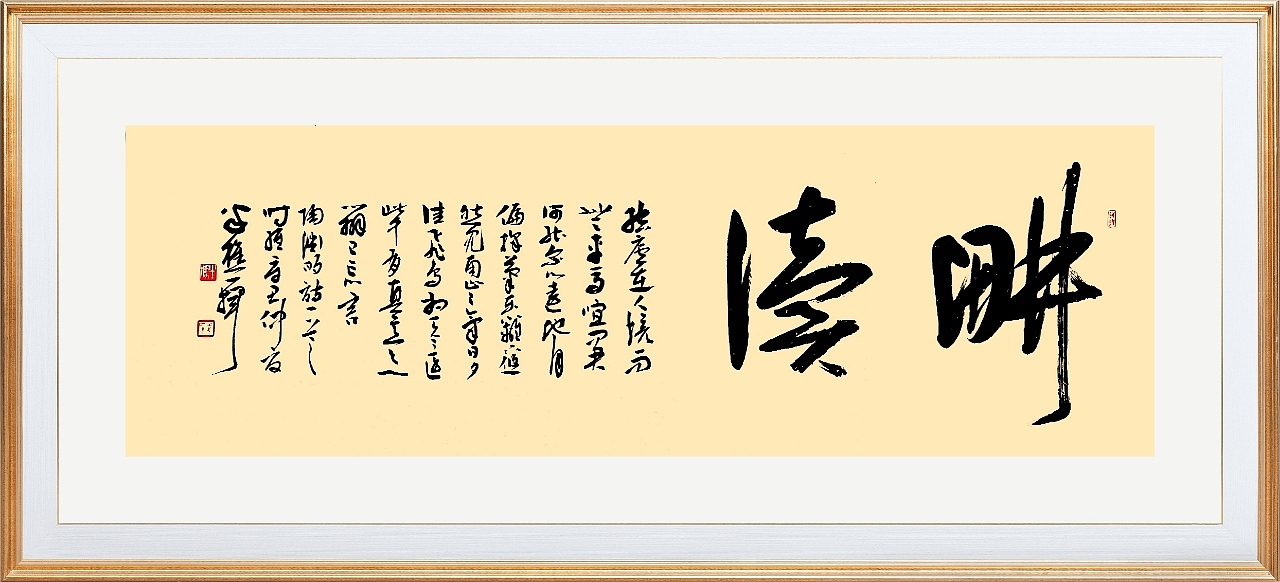 畊
读
结庐在人境而
无车马喧问君
何能尔心远地自
偏採菊东篱下悠
然见南山山气日夕
佳飞鸟相与还
此中有真意欲
辨已忘言
陶渊明诗一首